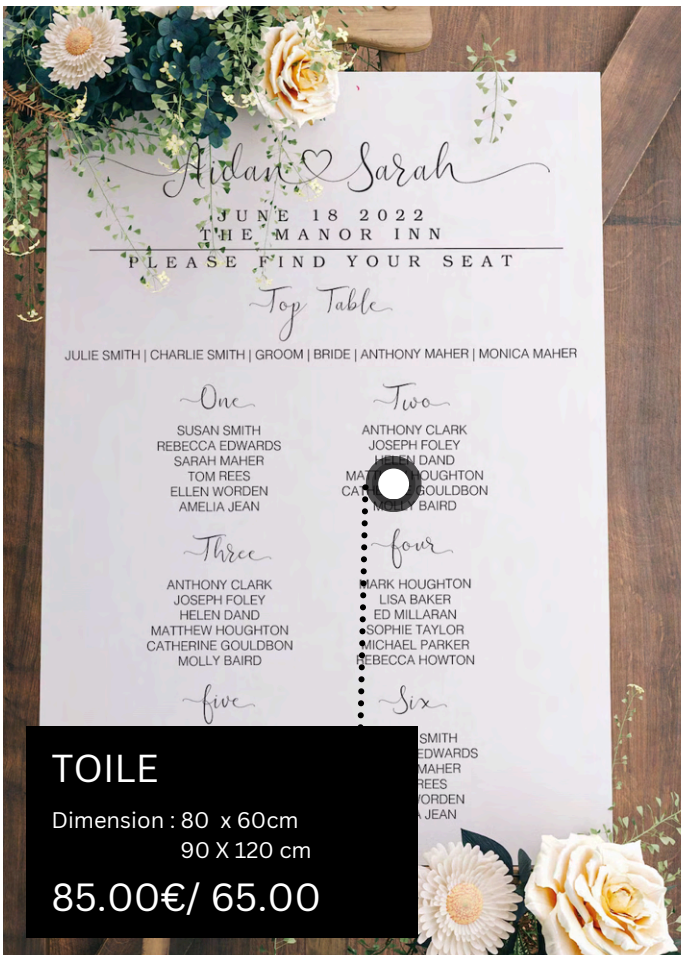 Aidan ♡ Sarah
JUNE 18 2022
THE MANOR INN
PLEASE FIND YOUR SEAT
Top Table
JULIE SMITH | CHARLIE SMITH | GROOM | BRIDE | ANTHONY MAHER | MONICA MAHER
One
SUSAN SMITH
REBECCA EDWARDS
SARAH MAHER
TOM REES
ELLEN WORDEN
AMELIA JEAN
Two
ANTHONY CLARK
JOSEPH FOLEY
HELEN DAND
HOUGHTON
GOULDBON
MOLLY BAIRD
Three
ANTHONY CLARK
JOSEPH FOLEY
HELEN DAND
MATTHEW HOUGHTON
CATHERINE GOULDBON
MOLLY BAIRD
four
MARK HOUGHTON
LISA BAKER
ED MILLARAN
SOPHIE TAYLOR
MICHAEL PARKER
REBECCA HOWTON
five
Six
SMITH
EDWARDS
MAHER
REES
WORDEN
JEAN
TOILE
Dimension : 80 x 60cm
90 X 120 cm
85.00€/ 65.00